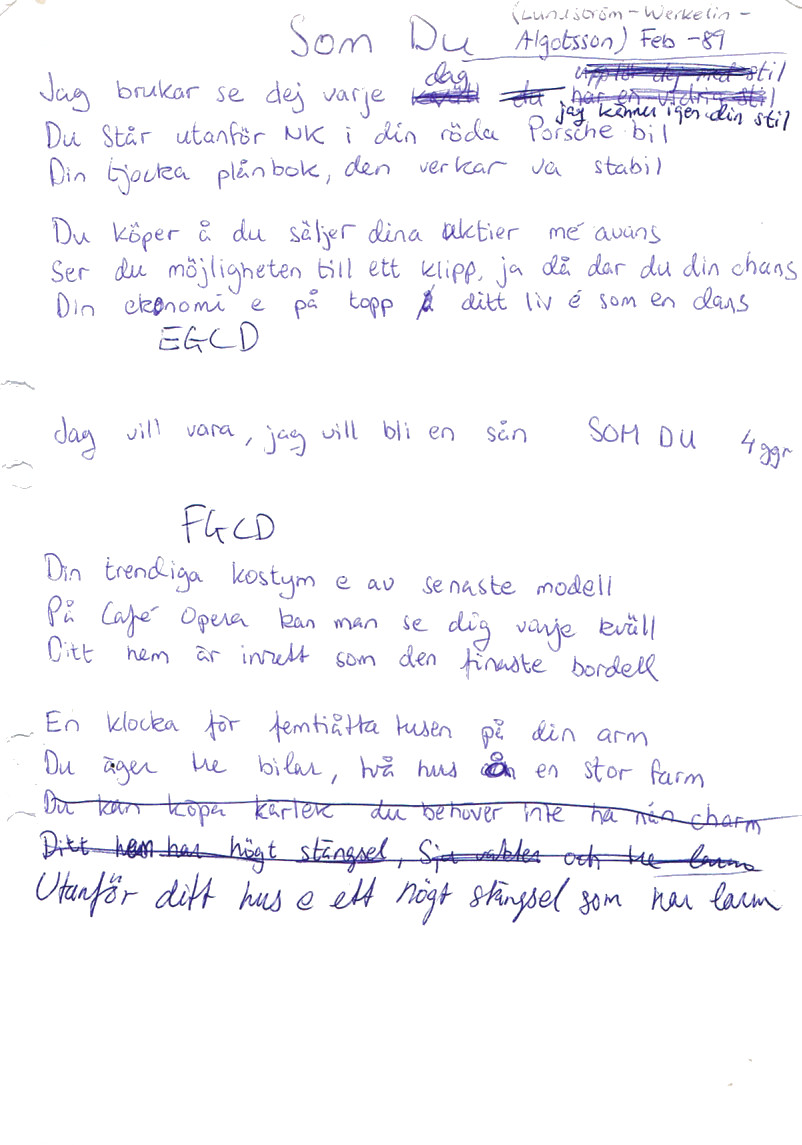 Som Du
(Lundström - Werkelin -
Algotsson) Feb -89
uppför dej med stil
Jag brukar se dej varje kväll dag du har en vidrig stil
jag känner igen din stil
Du står utanför NK i din röda Porsche bil
Din tjocka plånbok, den verkar va stabil
Du köper å du säljer dina aktier mé avans
Ser du möjligheten till ett klipp, ja då dar du din chans
Din ekonomi e på topp ditt liv é som en dans
EGCD
Jag vill vara, jag vill bli en sån SOM DU 4 ggr
FGCD
Din trendiga kostym e av senaste modell
På Café Opera kan man se dig varje kväll
Ditt hem är inrett som den finaste bordell
En klocka för femtiåtta tusen på din arm
Du äger tre bilar, två hus en stor farm
Du kan köpa kärlek du behöver inte ha nån charm
Ditt hem har högt stängsel, och tre larm
Utanför ditt hus e ett högt stängsel som har larm